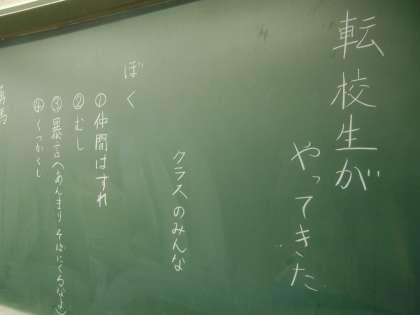 転校生が
やってきた
クラスのみんな
ぼく
①仲間はずれ
②むし
③暴言(あんまりそばにくるなよ)
④くつかくし